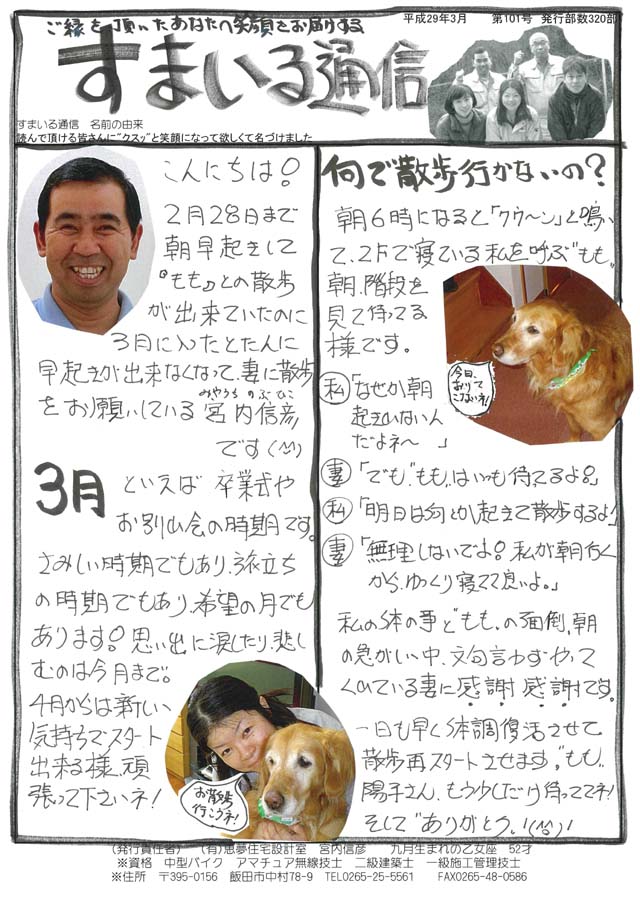 ご縁を頂いたあなたへ笑顔をお届けする
平成29年3月　第101号　発行部数320部
すまいる通信
すまいる通信　名前の由来
読んで頂ける皆さんに"クスッ"と笑顔になって欲しくて名づけました
こんにちは!
2月28日まで
朝早起きして
『もも』との散歩
が出来ていたのに
3月に入ったとたんに
早起きが出来なくなって、妻に散歩
みやうち のぶひこ
をお願いしている 宮内信彦
です(^^)
3月 といえば 卒業式や
お別れ会の時期です。
さみしい時期でもあり、旅立ち
の時期でもあり、希望の月でも
あります!思い出に涙したり、悲し
むのは今月まで。
4月からは新しい
気持ちで、スタート
出来る様、頑
張って下さいネ!
お散歩
行こうネ!
何で散歩行かないの?
朝6時になると「クゥ〜ン」と鳴い
て、2Fで寝ている私を呼ぶ"もも"
朝、階段を
見て待ってる
様です。
今日、
おりて
こないネ!
私「なぜか朝
起きれないん
だよネ〜　」
妻「でも、"もも"はいつも待てるよ?」
私「明日は何とか起きて散歩するよ!」
妻「無理しないでよ?私が朝行く
から、ゆっくり寝てて良いよ。」
私の体の事と"もも"の面倒、朝
の忙がしい中、文句言わずやって
くれている妻に感謝感謝です。
一日も早く体調復活させて
散歩再スタートさせます。"もも"
陽子さん、もう少しだけ待っててネ!
そして"ありがとう"!(^^)!
(発行責任者)　(有)恵夢住宅設計室　宮内信彦　　九月生まれの乙女座　52才
※資格　中型バイク　アマチュア無線技士　二級建築士　一級施工管理技士
※住所　〒395-0156　飯田市中村78-9　TEL0265-25-5561　　FAX0265-48-0586